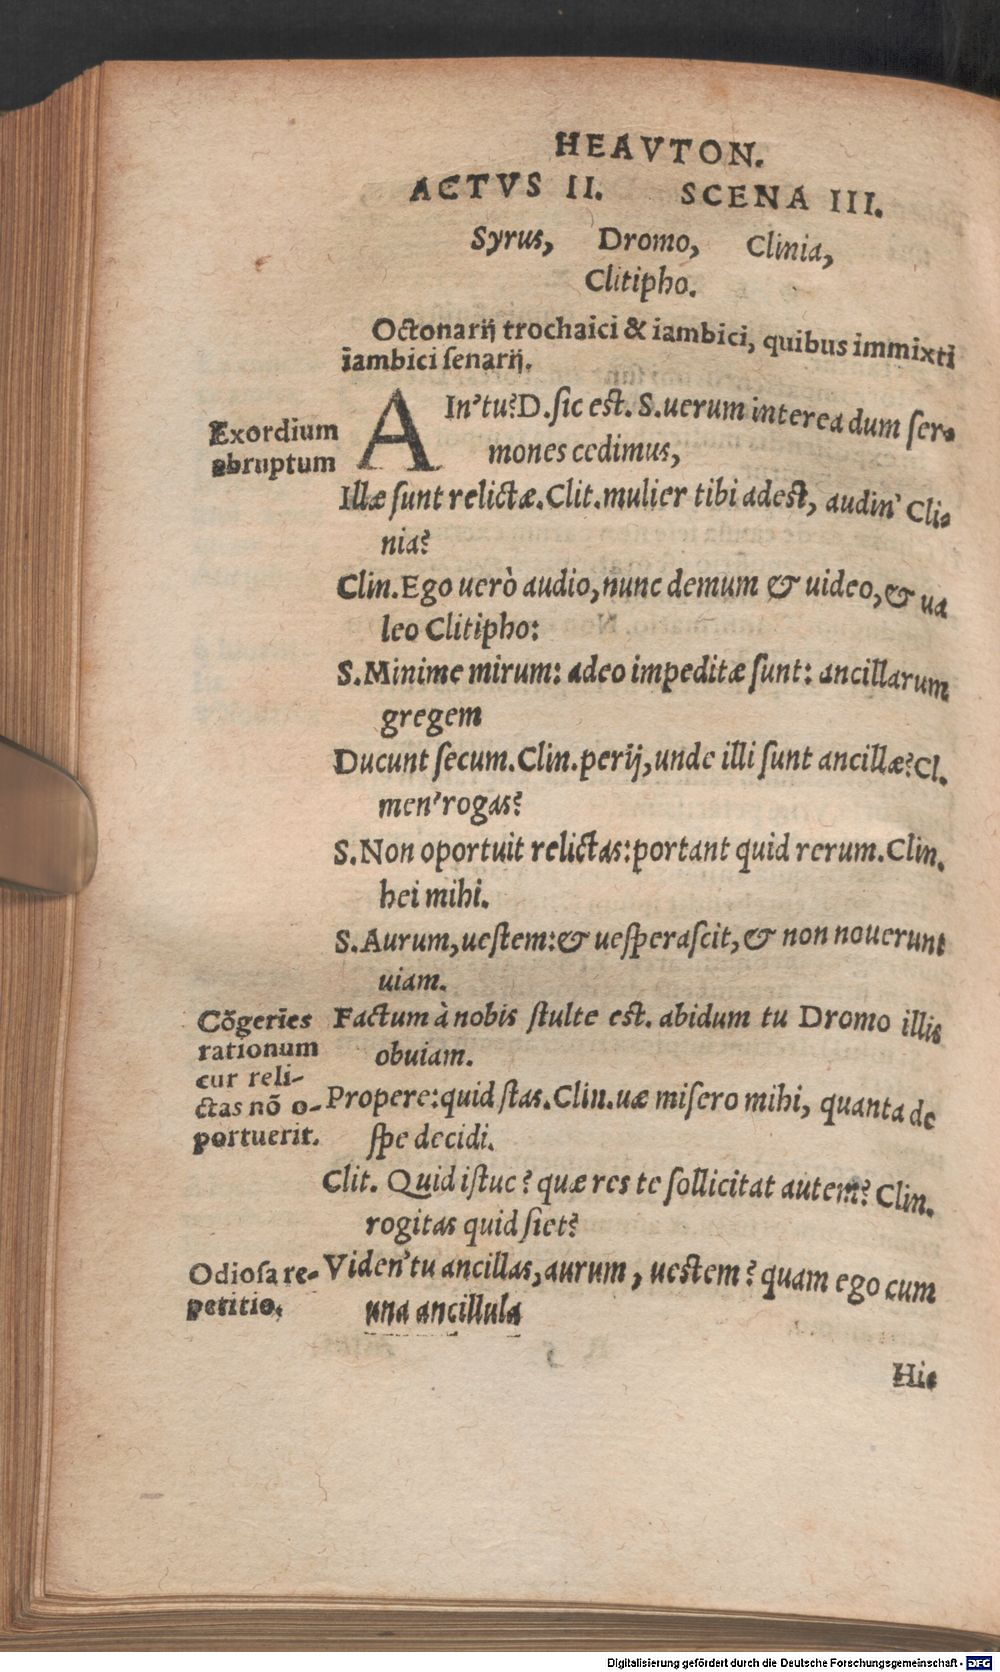 HEAVTON.
ACTVS II. SCENA III.
Syrus, Dromo, Clinia,
Clitipho.
Octonarij trochaici & iambici, quibus immixti
iambici ſenarij.
Exordium
abruptum
AIn'tu? D. ſic eſt. S. uerum interea dum ſer-
mones cedimus,
Illæ ſunt relictæ. Clit. mulier tibi adeſt, audin' Cli-
nia?
Clin. Ego uerò audio, nunc demum & uideo, & ua
leo Clitipho:
S. Minime mirum: adeo impeditæ ſunt: ancillarum
gregem
Ducunt ſecum. Clin. perij, unde illi ſunt ancillæ? Cl.
men'rogas?
S. Non oportuit relictas: portant quid rerum. Clin.
hei mihi.
S. Aurum, ueſtem: & ueſperaſcit, & non nouerunt
uiam.
Cõgeries
rationum
cur reli-
ctas nõ o-
portuerit.
Factum à nobis ſtulte eſt. abidum tu Dromo illis
obuiam.
Propere: quid ſtas. Clin. uæ miſero mihi, quanta de
ſpe decidi.
Clit. Quid iſtuc? quæ res te ſollicitat autem? Clin.
rogitas quid ſiet?
Odioſa re-
petitio.
Viden'tu ancillas, aurum, ueſtem? quam ego cum
una ancillula
Hic
Digitalisierung gefördert durch die Deutsche Forschungsgemeinschaft - DFG